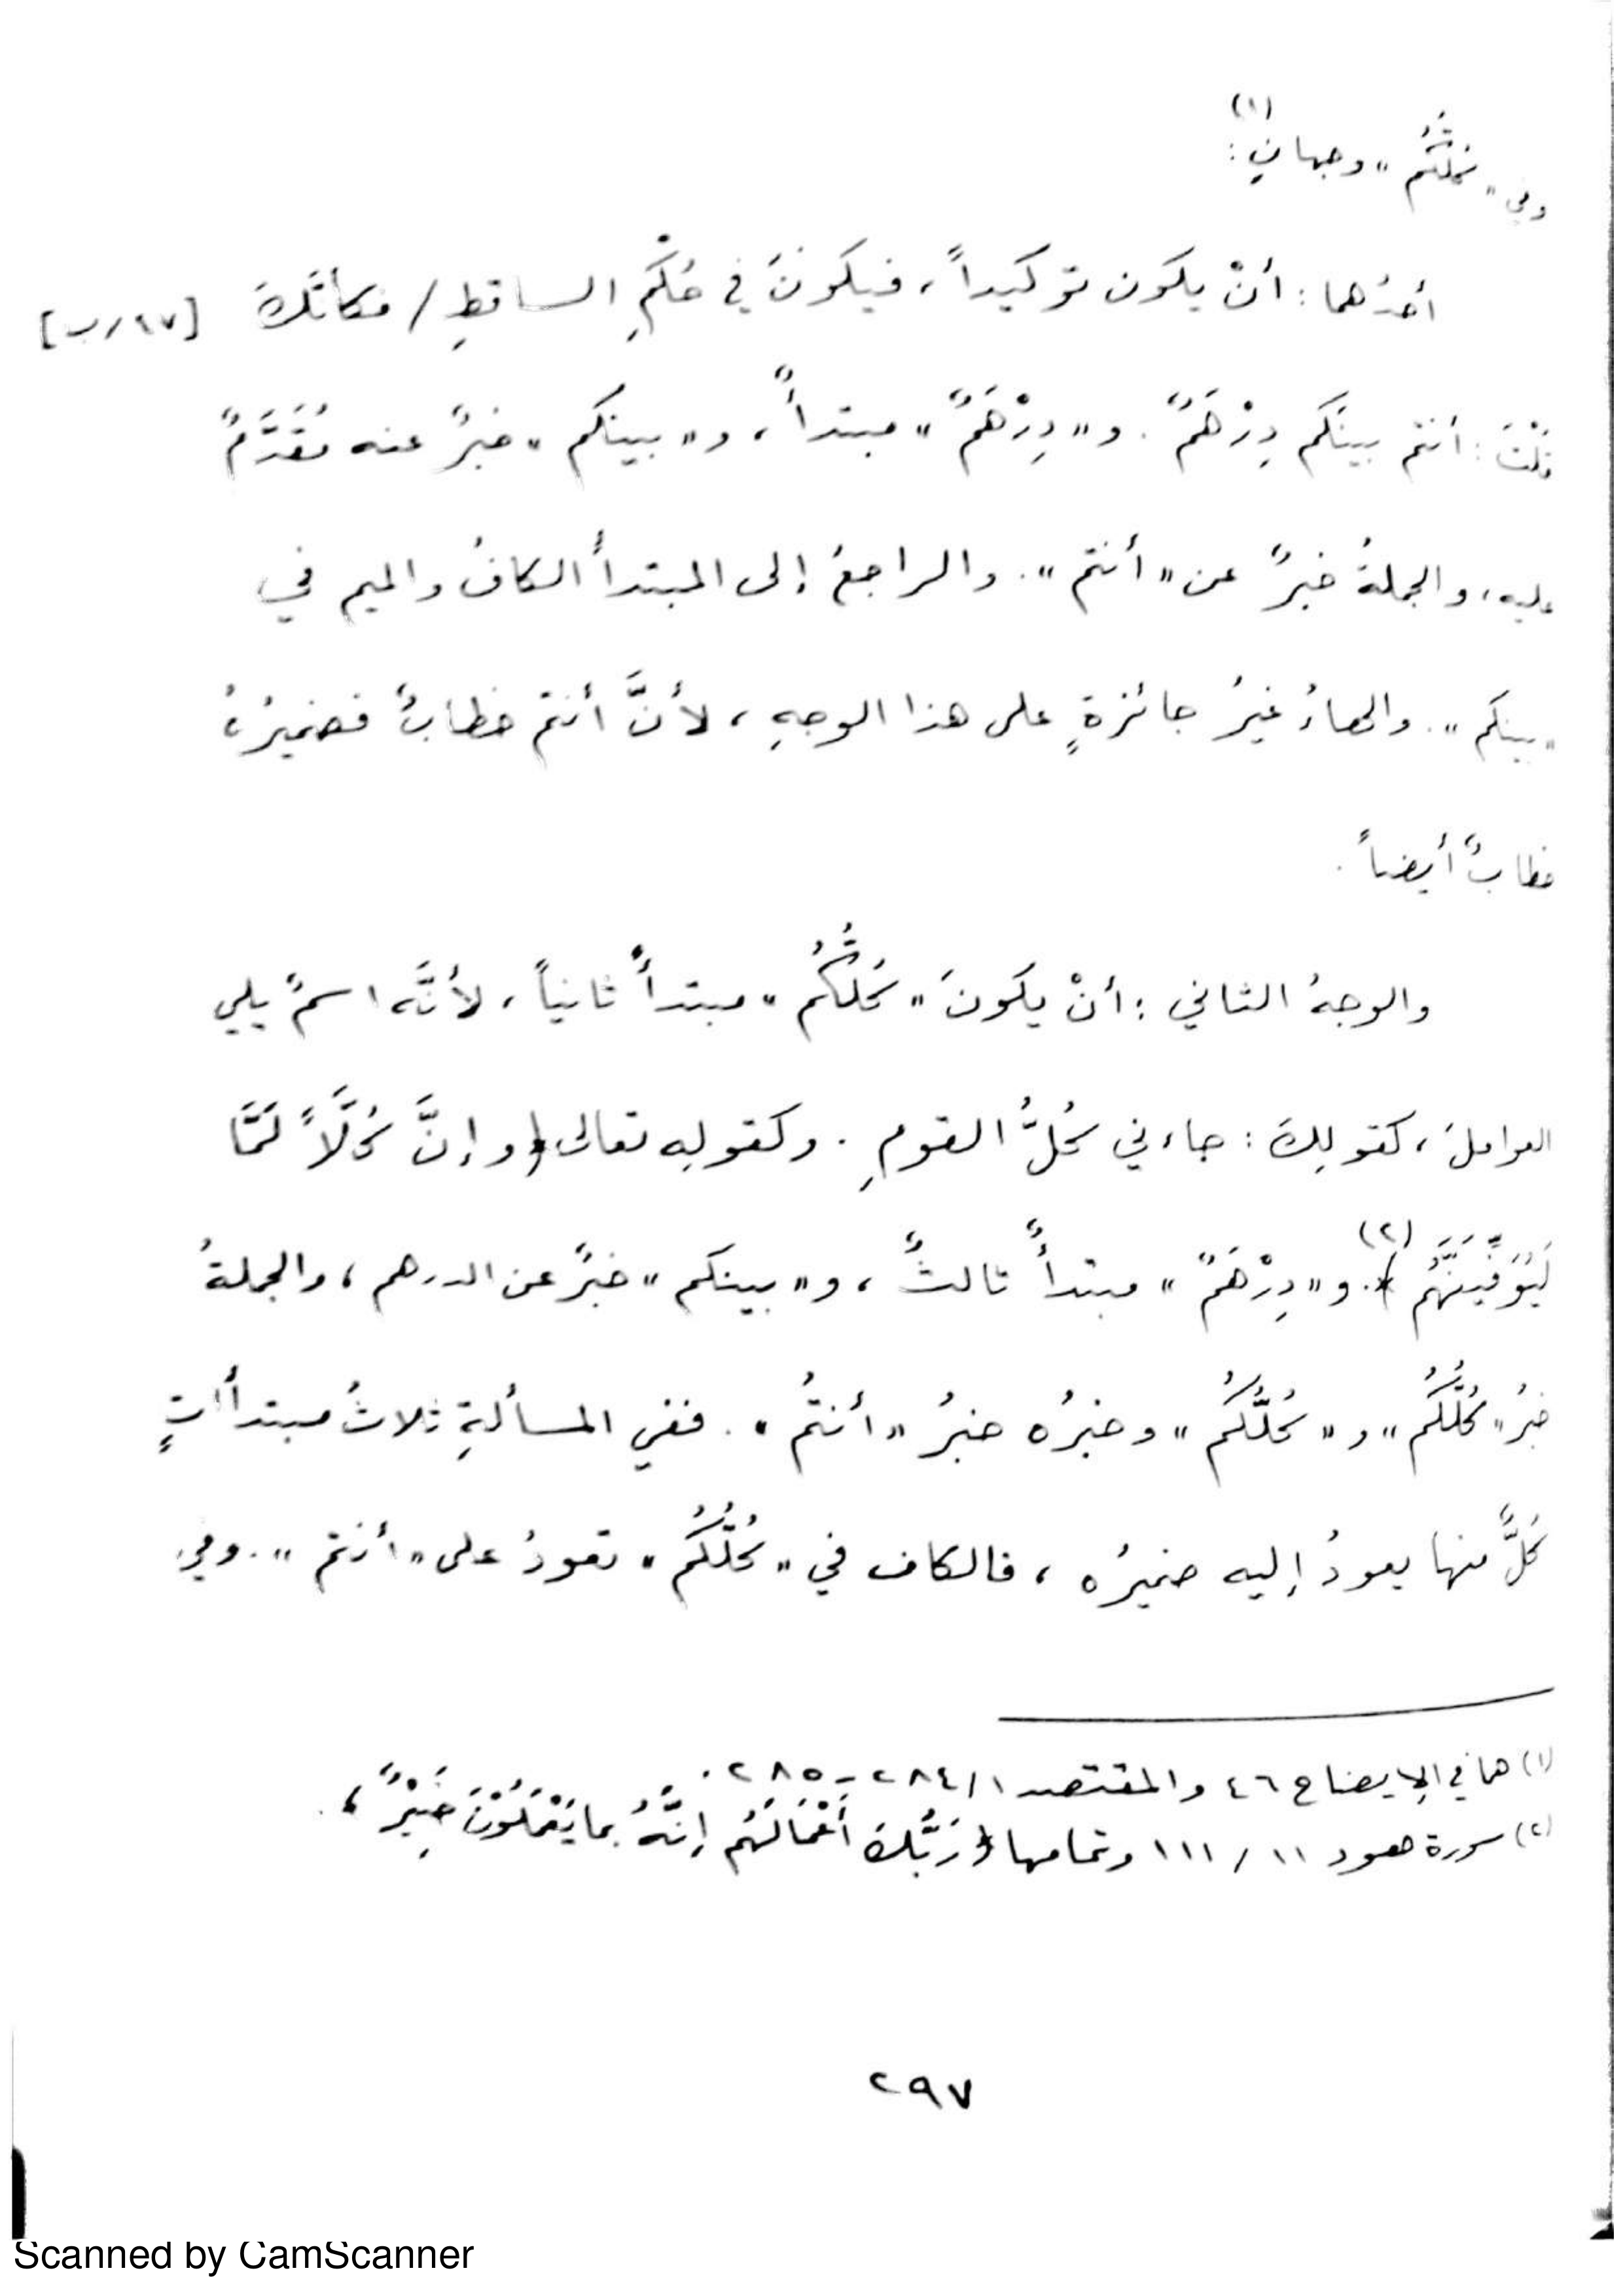 (١)
وفي « كُلُّكُم » وجهانِ :
أحدُهما : أنْ يكون توكيداً ، فيكونَ في حُكْمِ الساقطِ / فكأنَّكَ [٩٧/ب]
قُلْتَ : أنتم بينَكم دِرْهَمٌ . و « دِرْهَمٌ » مبتدأٌ ، و « بينكم » خبرٌ عنه مُقَدَّمٌ
عليه ، والجملةُ خبرٌ عن « أنتم » . والراجعُ إلى المبتدأ الكافُ والميم في
« بينكم » . والهاءُ غيرُ جائزةٍ على هذا الوجهِ ، لأنَّ أنتم خطابٌ فضميرُهُ
خطابٌ أيضاً .
والوجهُ الثاني : أنْ يكونَ « كُلُّكُم » مبتدأً ثانياً ، لأنَّه اسمٌ يلي
العواملَ ، كقولِكَ : جاءني كُلُّ القومِ . وكقولِه تعالى ﴿ وإنَّ كُلَّاً لَمَّا
لَيُوَفِّيَنَّهُم ﴾(٢). و « دِرْهَمٌ » مبتدأٌ ثالثٌ ، و « بينكم » خبرٌ عن الدرهم ، والجملةُ
خبرُ « كُلُّكُم » و « كُلُّكُم » وخبرُه خبرُ « أنتُم » . ففي المسألةِ ثلاثُ مبتدأاتٍ
كُلٌّ منها يعودُ إليه ضميرُه ، فالكاف في « كُلُّكُم » تعودُ على « أنتم » . وفي
(١) هما في الإيضاح ٤٦ والمقتصد ١/٢٨٤ - ٢٨٥ .
(٢) سورة هود ١١ / ١١١ وتمامها ﴿ رَبُّكَ أَعْمَالَهُم إنَّهُ بما يَعْمَلُوْنَ خَبِيْرٌ ﴾ .
٢٩٧
Scanned by CamScanner